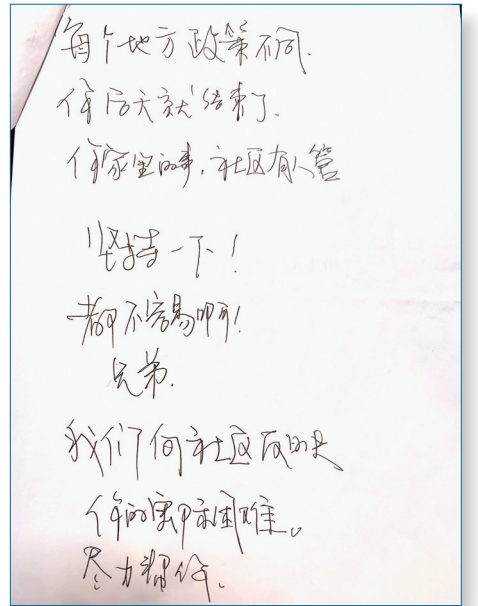 每个地方政策不同.
你后天就结束了.
你家里的事,社区有人管
坚持一下!
都不容易啊!
兄弟.
我们向社区反映
你的实际困难。
尽力帮你.